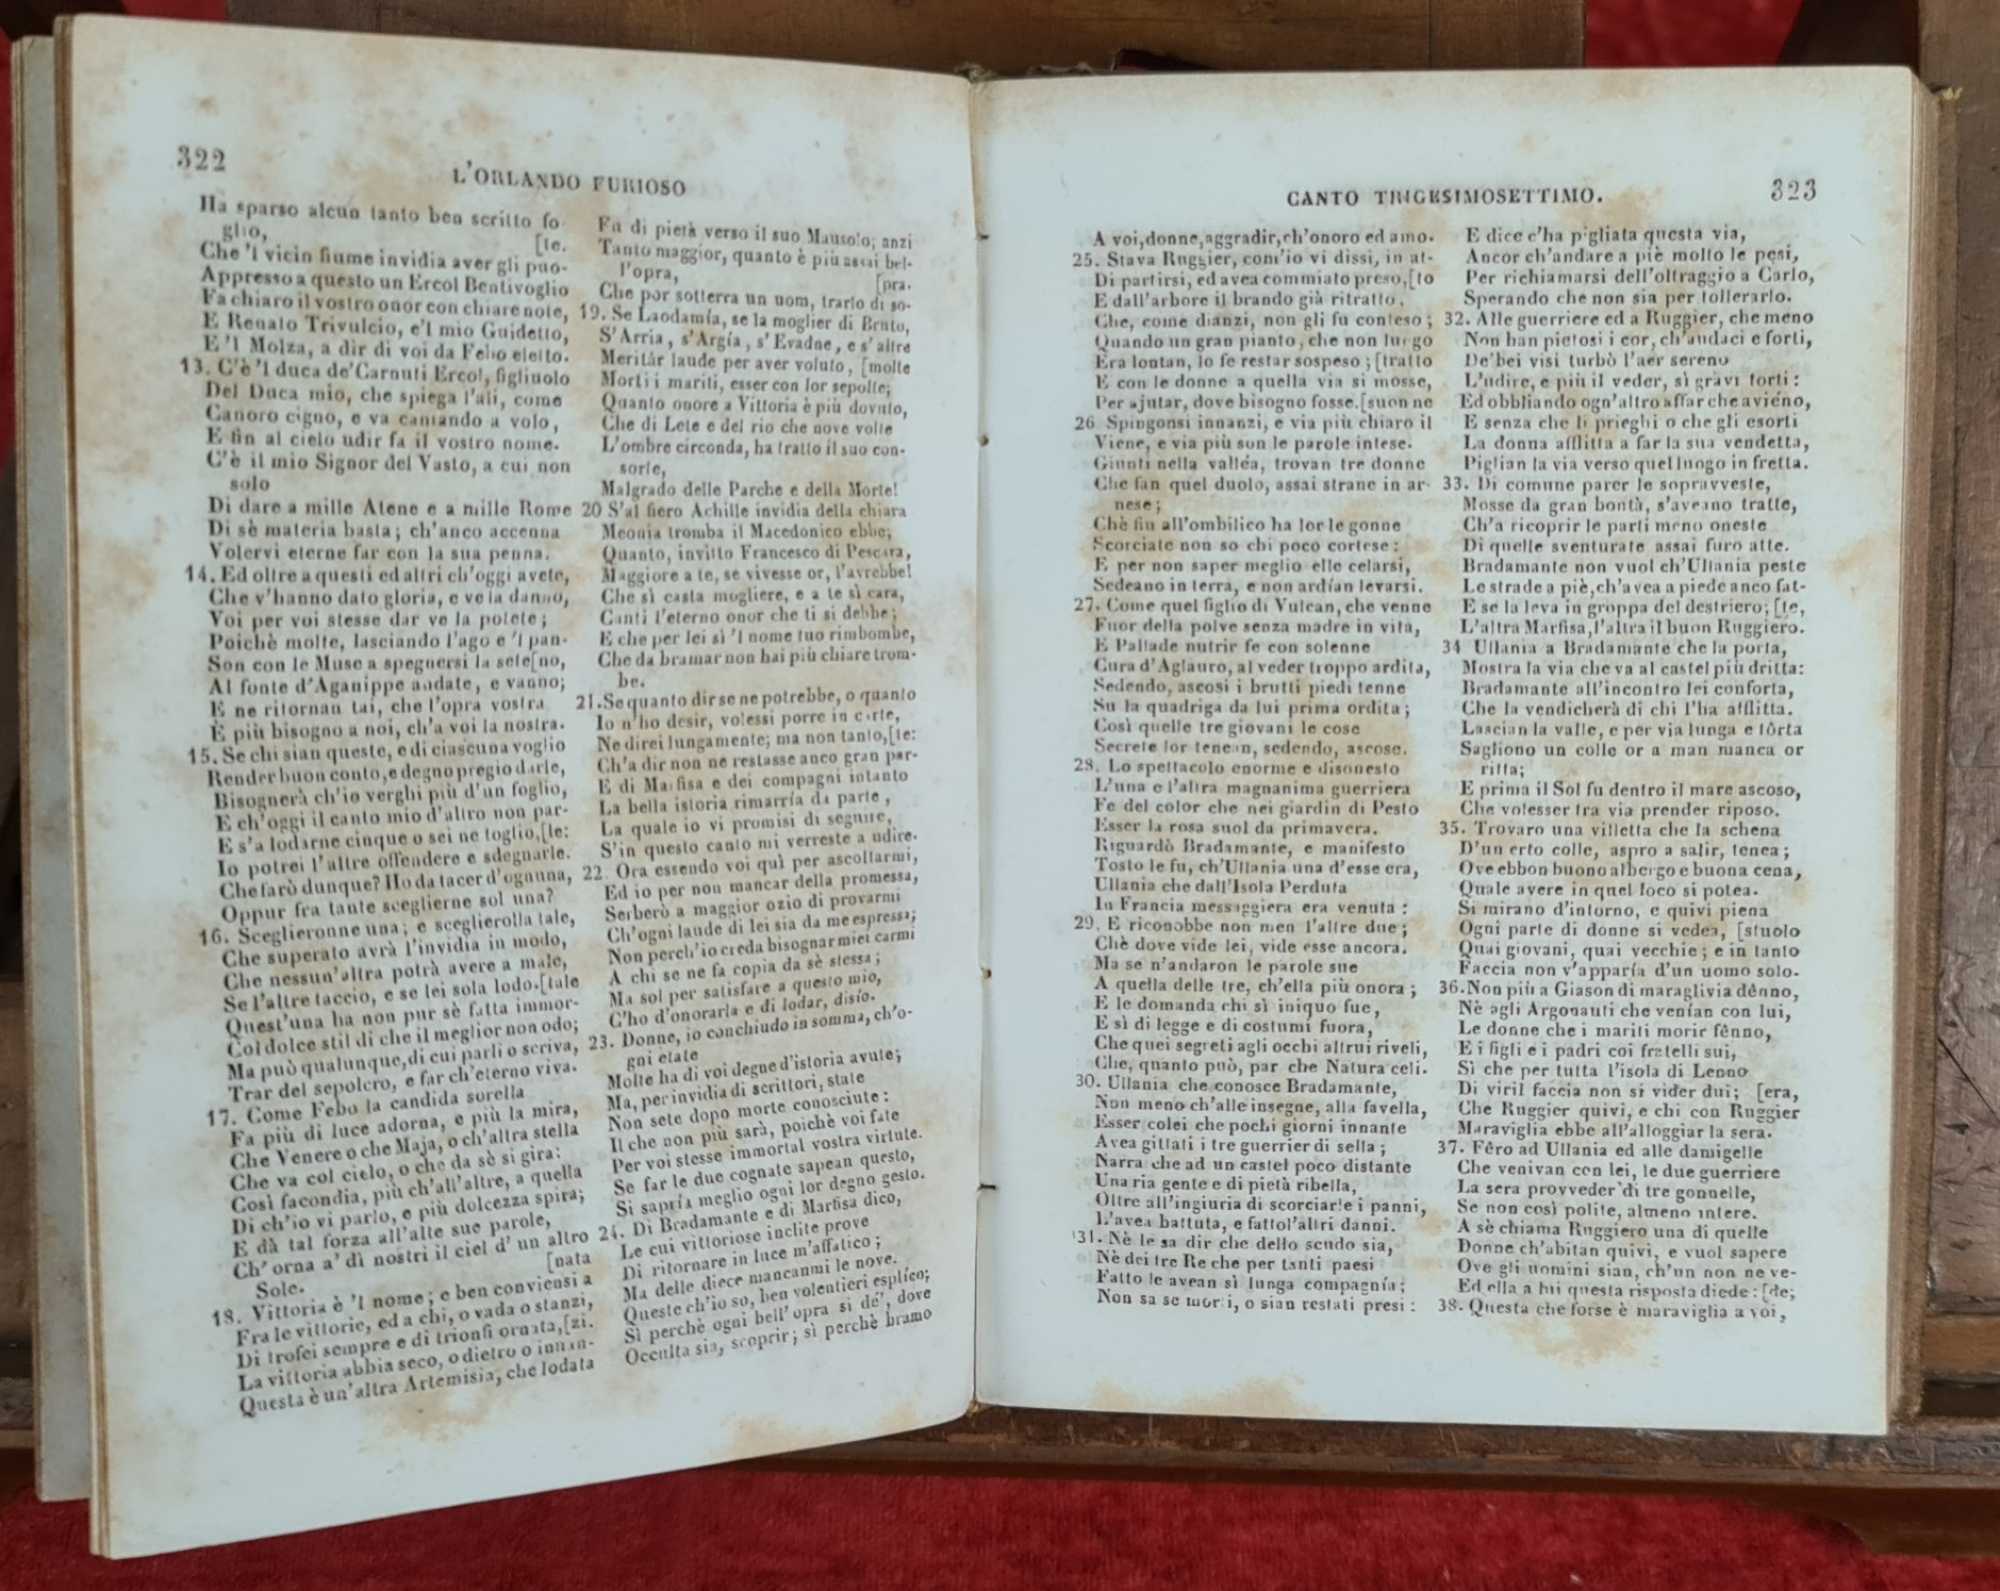 322
L'ORLANDO FURIOSO
Ha sparso alcun tanto ben scritto fo-
glio, [te.
Che 'l vicin fiume invidia aver gli puo-
Appresso a questo un Ercol Bentivoglio
Fa chiaro il vostro onor con chiare note,
E Renato Trivulcio, e'l mio Guidetto,
E 'l Molza, a dir di voi da Febo eletto.
13. C'è 'l duca de'Carnuti Ercol, figliuolo
Del Duca mio, che spiega l'ali, come
Canoro cigno, e va cantando a volo,
E fin al cielo udir fa il vostro nome.
C'è il mio Signor del Vasto, a cui non
solo
Di dare a mille Atene e a mille Rome
Di sè materia basta; ch'anco accenna
Volervi eterne far con la sua penna.
14. Ed oltre a questi ed altri ch'oggi avete,
Che v'hanno dato gloria, e ve la danno,
Voi per voi stesse dar ve la potete;
Poichè molte, lasciando l'ago e 'l pan-
Son con le Muse a spegnersi la sete[no,
Al fonte d'Aganippe andate, e vanno;
E ne ritornan tai, che l'opra vostra
È più bisogno a noi, ch'a voi la nostra.
15. Se chi sian queste, e di ciascuna voglio
Render buon conto, e degno pregio darle,
Bisognerà ch'io verghi più d'un foglio,
E ch'oggi il canto mio d'altro non par-
E s'a lodarne cinque o sei ne toglio,[le:
Io potrei l'altre offendere e sdegnarle.
Che farò dunque? Ho da tacer d'ognuna,
Oppur fra tante sceglierne sol una?
16. Sceglieronne una; e sceglierolla tale,
Che superato avrà l'invidia in modo,
Che nessun'altra potrà avere a male,
Se l'altre taccio, e se lei sola lodo.[tale
Quest'una ha non pur sè fatta immor-
Col dolce stil di che il meglior non odo;
Ma può qualunque, di cui parli o scriva,
Trar del sepolcro, e far ch'eterno viva.
17. Come Febo la candida sorella
Fa più di luce adorna, e più la mira,
Che Venere o che Maja, o ch'altra stella
Che va col cielo, o che da sè si gira:
Così facondia, più ch'all'altre, a quella
Di ch'io vi parlo, e più dolcezza spira;
E dà tal forza all'alte sue parole,
Ch' orna a' dì nostri il ciel d' un altro
Sole. [nata
18. Vittoria è 'l nome; e ben conviensi a
Fra le vittorie, ed a chi, o vada o stanzi,
Di trofei sempre e di trionfi ornata,[zi.
La vittoria abbia seco, o dietro o innan-
Questa è un'altra Artemisia, che lodata
Fu di pietà verso il suo Mausolo; anzi
Tanto maggior, quanto è più assai bel-
l'opra, [pra.
Che por sotterra un uom, trarlo di so-
19. Se Laodamía, se la moglier di Bruto,
S'Arria, s'Argía, s'Evadne, e s'altre
Meritâr laude per aver voluto, [molte
Morti i mariti, esser con lor sepolte;
Quanto onore a Vittoria è più dovuto,
Che di Lete e del rio che nove volte
L'ombre circonda, ha tratto il suo con-
sorte,
Malgrado delle Parche e della Morte!
20 S'al fiero Achille invidia della chiara
Meonia tromba il Macedonico ebbe;
Quanto, invitto Francesco di Pescara,
Maggiore a te, se vivesse or, l'avrebbe!
Che sì casta mogliere, e a te sì cara,
Canti l'eterno onor che ti si debbe;
E che per lei sì 'l nome tuo rimbombe,
Che da bramar non hai più chiare trom-
be.
21. Se quanto dir se ne potrebbe, o quanto
Io n'ho desir, volessi porre in carte,
Ne direi lungamente; ma non tanto,[te:
Ch'a dir non ne restasse anco gran par-
E di Marfisa e dei compagni intanto
La bella istoria rimarría da parte,
La quale io vi promisi di seguire,
S'in questo canto mi verreste a udire.
22. Ora essendo voi quì per ascoltarmi,
Ed io per non mancar della promessa,
Serberò a maggior ozio di provarmi
Ch'ogni laude di lei sia da me espressa;
Non perch'io creda bisognar miei carmi
A chi se ne fa copia da sè stessa;
Ma sol per satisfare a questo mio,
C'ho d'onorarla e di lodar, disío.
23. Donne, io conchiudo in somma, ch'o-
gni etate
Molte ha di voi degne d'istoria avute;
Ma, per invidia di scrittori, state
Non sete dopo morte conosciute:
Il che non più sarà, poichè voi fate
Per voi stesse immortal vostra virtute.
Se far le due cognate sapean questo,
Si sapría meglio ogni lor degno gesto.
24. Di Bradamante e di Marfisa dico,
Le cui vittoriose inclite prove
Di ritornare in luce m'affatico;
Ma delle diece mancanmi le nove.
Queste ch'io so, ben volentieri esplíco;
Sì perchè ogni bell' opra si de', dove
Occulta sia, scoprir; sì perchè bramo
CANTO TRIGESIMOSETTIMO.
323
A voi, donne, aggradir, ch'onoro ed amo.
25. Stava Ruggier, com'io vi dissi, in at-
Di partirsi, ed avea commiato preso,[to
E dall'arbore il brando già ritratto,
Che, come dianzi, non gli fu conteso;
Quando un gran pianto, che non lungo
Era lontan, lo fe restar sospeso; [tratto
E con le donne a quella via si mosse,
Per ajutar, dove bisogno fosse.[suon ne
26 Spingonsi innanzi, e via più chiaro il
Viene, e via più son le parole intese.
Giunti nella valléa, trovan tre donne
Che fan quel duolo, assai strane in ar-
nese;
Chè fin all'ombilico ha lor le gonne
Scorciate non so chi poco cortese:
E per non saper meglio elle celarsi,
Sedeano in terra, e non ardían levarsi.
27. Come quel figlio di Vulcan, che venne
Fuor della polve senza madre in vita,
E Pallade nutrir fe con solenne
Cura d'Aglauro, al veder troppo ardita,
Sedendo, ascosi i brutti piedi tenne
Su la quadriga da lui prima ordita;
Così quelle tre giovani le cose
Secrete lor tenean, sedendo, ascose.
28. Lo spettacolo enorme e disonesto
L'una e l'altra magnanima guerriera
Fe del color che nei giardin di Pesto
Esser la rosa suol da primavera.
Riguardò Bradamante, e manifesto
Tosto le fu, ch'Ullania una d'esse era,
Ullania che dall'Isola Perduta
In Francia messaggiera era venuta:
29. E riconobbe non men l'altre due;
Chè dove vide lei, vide esse ancora.
Ma se n'andaron le parole sue
A quella delle tre, ch'ella più onora;
E le domanda chi sì iniquo fue,
E sì di legge e di costumi fuora,
Che quei segreti agli occhi altrui riveli,
Che, quanto può, par che Natura celi.
30. Ullania che conosce Bradamante,
Non meno ch'alle insegne, alla favella,
Esser colei che pochi giorni innante
Avea gittati i tre guerrier di sella;
Narra che ad un castel poco distante
Una ria gente e di pietà ribella,
Oltre all'ingiuria di scorciarle i panni,
L'avea battuta, e fattol'altri danni.
31. Nè le sa dir che dello scudo sia,
Nè dei tre Re che per tanti paesi
Fatto le avean sì lunga compagnía;
Non sa se morti, o sian restati presi:
E dice c'ha pigliata questa via,
Ancor ch'andare a piè molto le pesi,
Per richiamarsi dell'oltraggio a Carlo,
Sperando che non sia per tollerarlo.
32. Alle guerriere ed a Ruggier, che meno
Non han pietosi i cor, ch'audaci e forti,
De'bei visi turbò l'aer sereno
L'udire, e più il veder, sì gravi torti:
Ed obbliando ogn'altro affar che avieno,
E senza che li prieghi o che gli esorti
La donna afflitta a far la sua vendetta,
Piglian la via verso quel luogo in fretta.
33. Di comune parer le sopravveste,
Mosse da gran bontà, s'aveano tratte,
Ch'a ricoprir le parti meno oneste
Di quelle sventurate assai furo atte.
Bradamante non vuol ch'Ullania peste
Le strade a piè, ch'avea a piede anco fat-
E se la leva in groppa del destriero; [te,
L'altra Marfisa, l'altra il buon Ruggiero.
34 Ullania a Bradamante che la porta,
Mostra la via che va al castel più dritta:
Bradamante all'incontro lei conforta,
Che la vendicherà di chi l'ha afflitta.
Lascian la valle, e per via lunga e tôrta
Sagliono un colle or a man manca or
ritta;
E prima il Sol fu dentro il mare ascoso,
Che volesser tra via prender riposo.
35. Trovaro una villetta che la schena
D'un erto colle, aspro a salir, tenea;
Ove ebbon buono albergo e buona cena,
Quale avere in quel loco si potea.
Si mirano d'intorno, e quivi piena
Ogni parte di donne si vedea, [stuolo
Quai giovani, quai vecchie; e in tanto
Faccia non v'apparía d'un uomo solo.
36. Non più a Giason di maraglivia dênno,
Nè agli Argonauti che venían con lui,
Le donne che i mariti morir fênno,
E i figli e i padri coi fratelli sui,
Sì che per tutta l'isola di Lenno
Di viril faccia non si vider dui; [era,
Che Ruggier quivi, e chi con Ruggier
Maraviglia ebbe all'alloggiar la sera.
37. Fêro ad Ullania ed alle damigelle
Che venivan con lei, le due guerriere
La sera provveder di tre gonnelle,
Se non così polite, almeno intere.
A sè chiama Ruggiero una di quelle
Donne ch'abitan quivi, e vuol sapere
Ove gli uomini sian, ch'un non ne ve-
Ed ella a lui questa risposta diede: [de;
38. Questa che forse è maraviglia a voi,